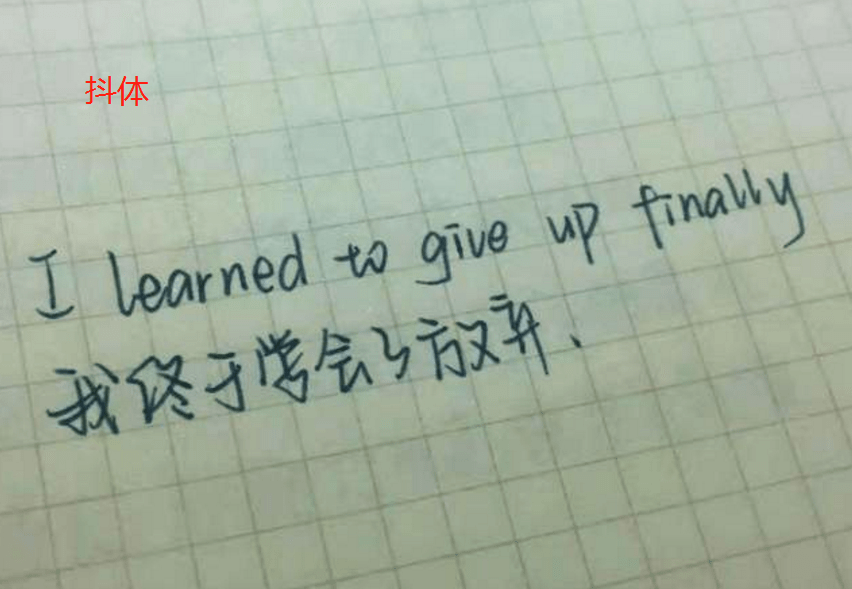 抖体
I learned to give up finally
我终于学会了放弃、